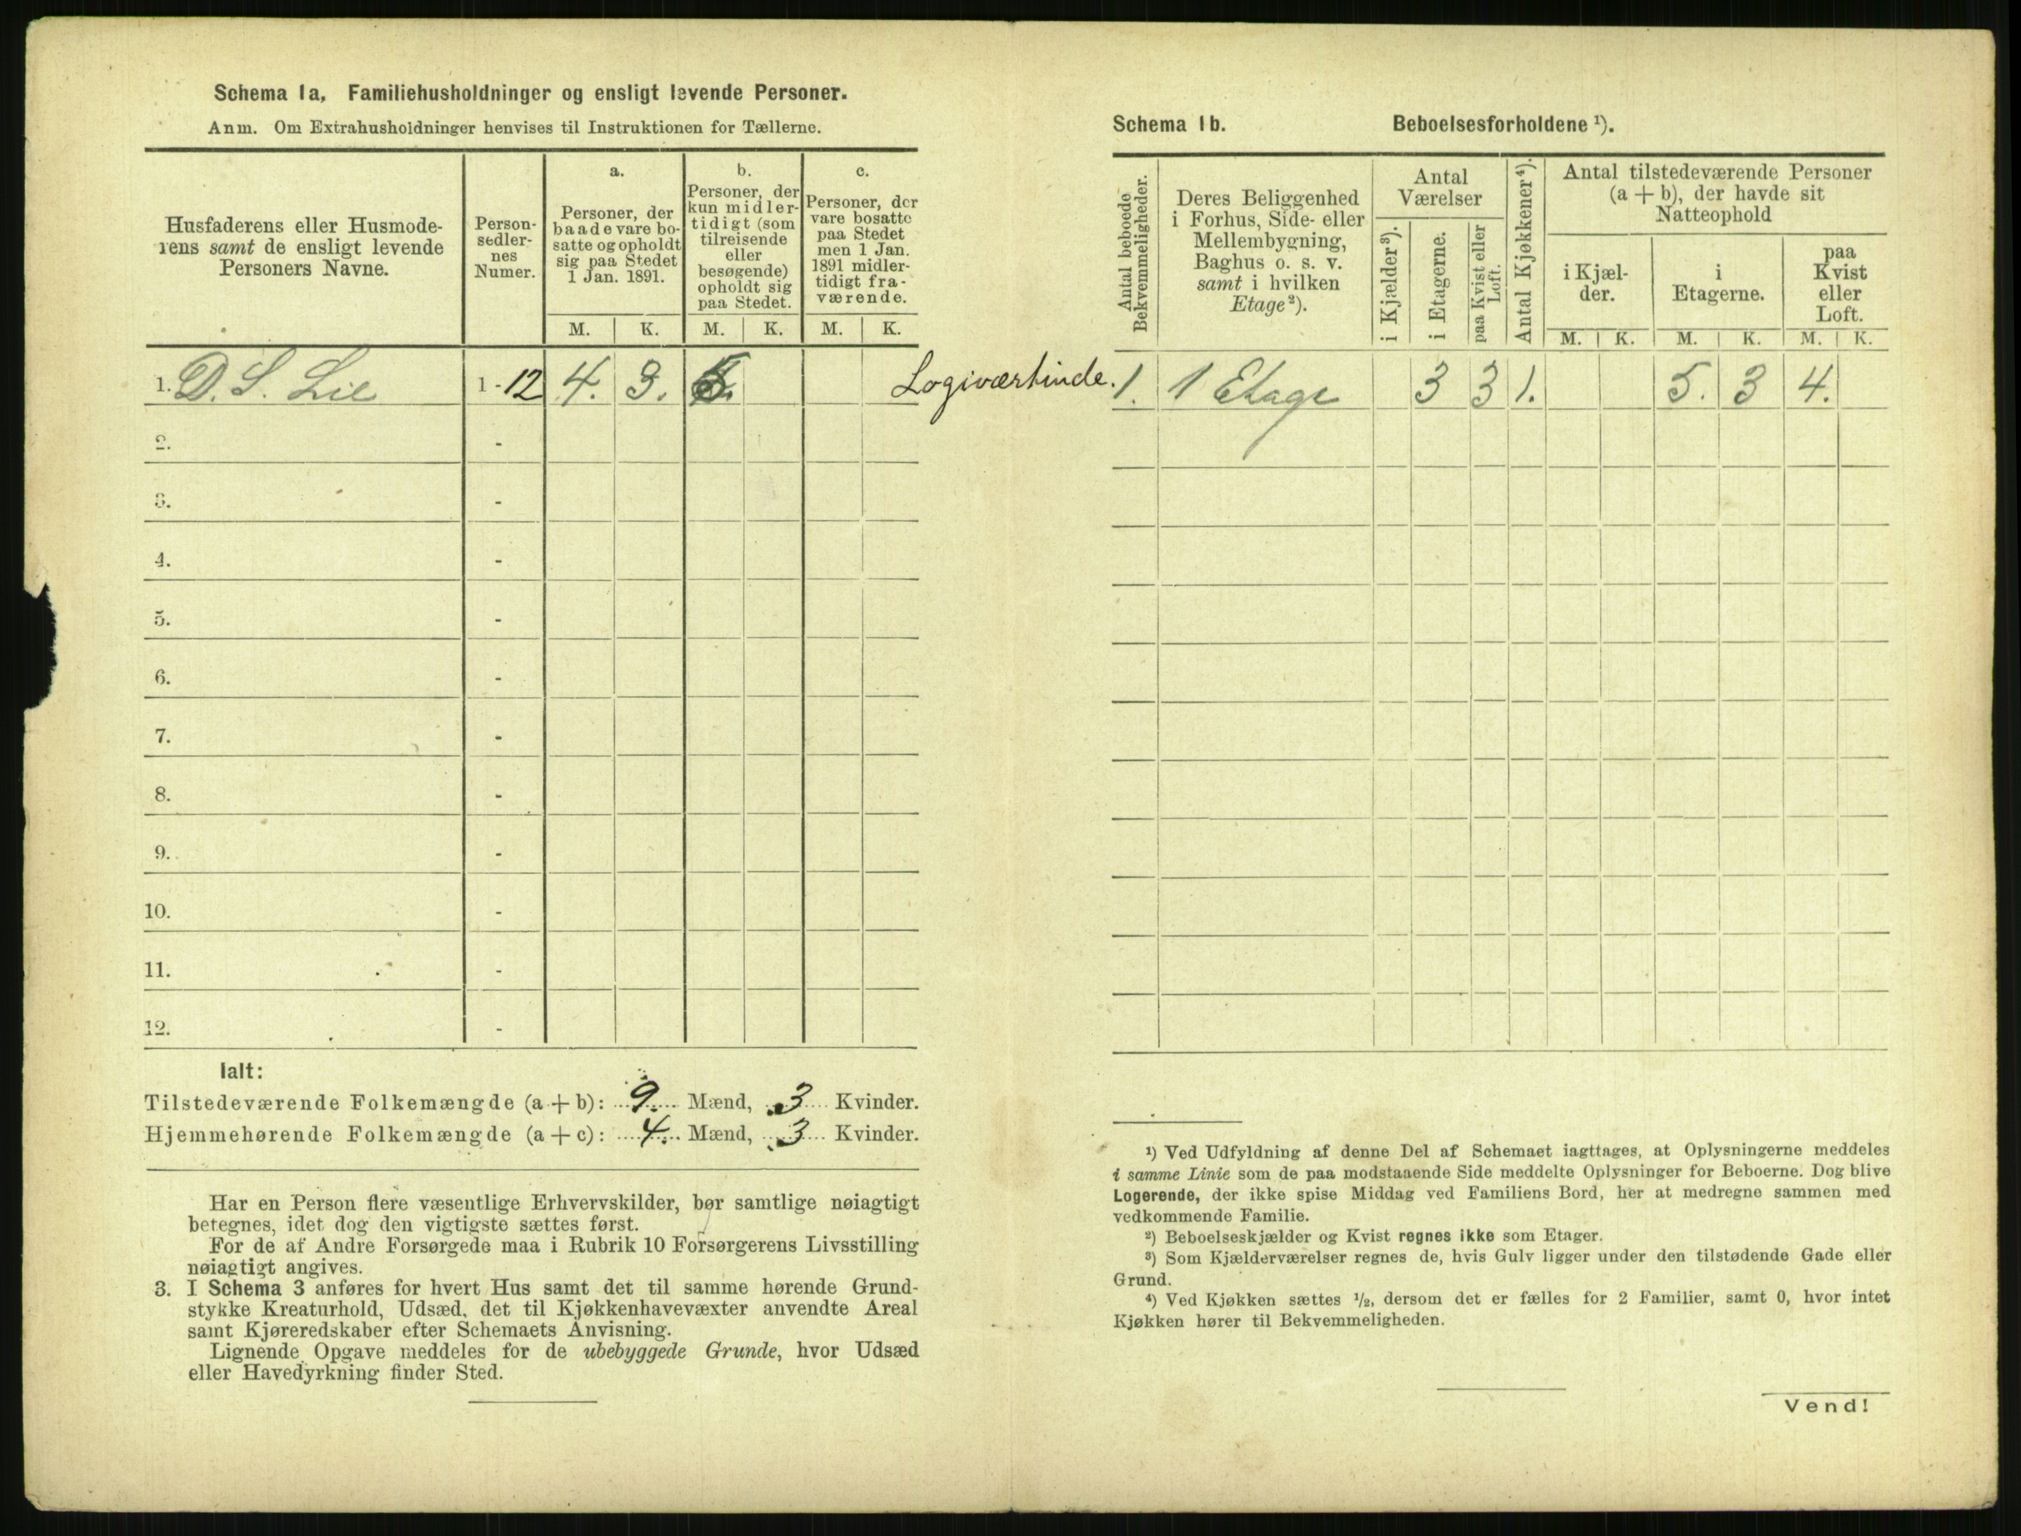 Schema 1a. Familiehusholdninger og ensligt levende Personer.
Anm. Om Extrahusholdninger henvises til Instruktionen for Tællerne.
Husfaderens eller Husmoderens samt de ensligt levende Personers Navne.
Personsedlernes Numer.
a.
Personer, der baade vare bosatte og opholdt sig paa Stedet 1 Jan. 1891.
b.
Personer, der kun midlertidigt (som tilreisende eller besøgende) opholdt sig paa Stedet.
c.
Personer, der vare bosatte paa Stedet men 1 Jan. 1891 midlertidigt fraværende.
M. K. M. K. M. K.
1. D. S. Lie 1 - 12 4. 3. 5. Logiværtinde.
2. -
3. -
4. -
5. -
6. -
7. -
8. -
9. -
10. -
11. -
12. -
Ialt:
Tilstedeværende Folkemængde (a + b): 9. Mænd, 3 Kvinder.
Hjemmehørende Folkemængde (a + c): 4. Mænd, 3 Kvinder.
Har en Person flere væsentlige Erhvervskilder, bør samtlige nøiagtigt
betegnes, idet dog den vigtigste sættes først.
For de af Andre Forsørgede maa i Rubrik 10 Forsørgerens Livsstilling
nøiagtigt angives.
3. I Schema 3 anføres for hvert Hus samt det til samme hørende Grund-
stykke Kreaturhold, Udsæd, det til Kjøkkenhavevæxter anvendte Areal
samt Kjøreredskaber efter Schemaets Anvisning.
Lignende Opgave meddeles for de ubebyggede Grunde, hvor Udsæd
eller Havedyrkning finder Sted.
Schema 1b. Beboelsesforholdene ¹).
Antal beboede Bekvemmeligheder.
Deres Beliggenhed i Forhus, Side- eller Mellembygning, Baghus o. s. v. samt i hvilken Etage²).
Antal Værelser
i Kjælder³).
i Etagerne.
paa Kvist eller Loft.
Antal Kjøkkener⁴).
Antal tilstedeværende Personer (a + b), der havde sit Natteophold
i Kjælder.
i Etagerne.
paa Kvist eller Loft.
M. K. M. K. M. K.
1. 1 Etage 3 3 1. 5. 3 4.
¹) Ved Udfyldning af denne Del af Schemaet iagttages, at Oplysningerne meddeles
i samme Linie som de paa modstaaende Side meddelte Oplysninger for Beboerne. Dog blive
Logerende, der ikke spise Middag ved Familiens Bord, her at medregne sammen med
vedkommende Familie.
²) Beboelseskjælder og Kvist regnes ikke som Etager.
³) Som Kjælderværelser regnes de, hvis Gulv ligger under den tilstødende Gade eller
Grund.
⁴) Ved Kjøkken sættes ½, dersom det er fælles for 2 Familier, samt 0, hvor intet
Kjøkken hører til Bekvemmeligheden.
Vend!